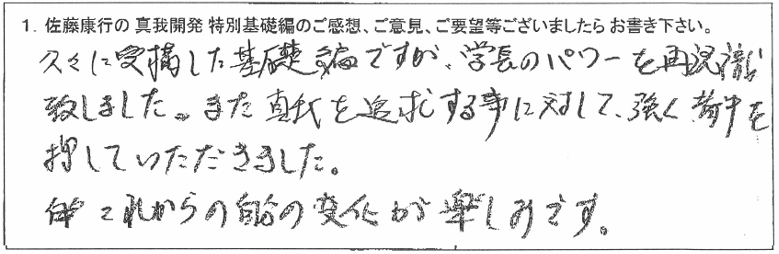 1. 佐藤康行の 真我開発 特別基礎編のご感想、ご意見、ご要望等ございましたら お書き下さい。
久々に受講した基礎編ですが、学長のパワーを再認識
致しました。また真我を追求する事に対して、強く背中を
押していただきました。
これからの自分の変化が楽しみです。